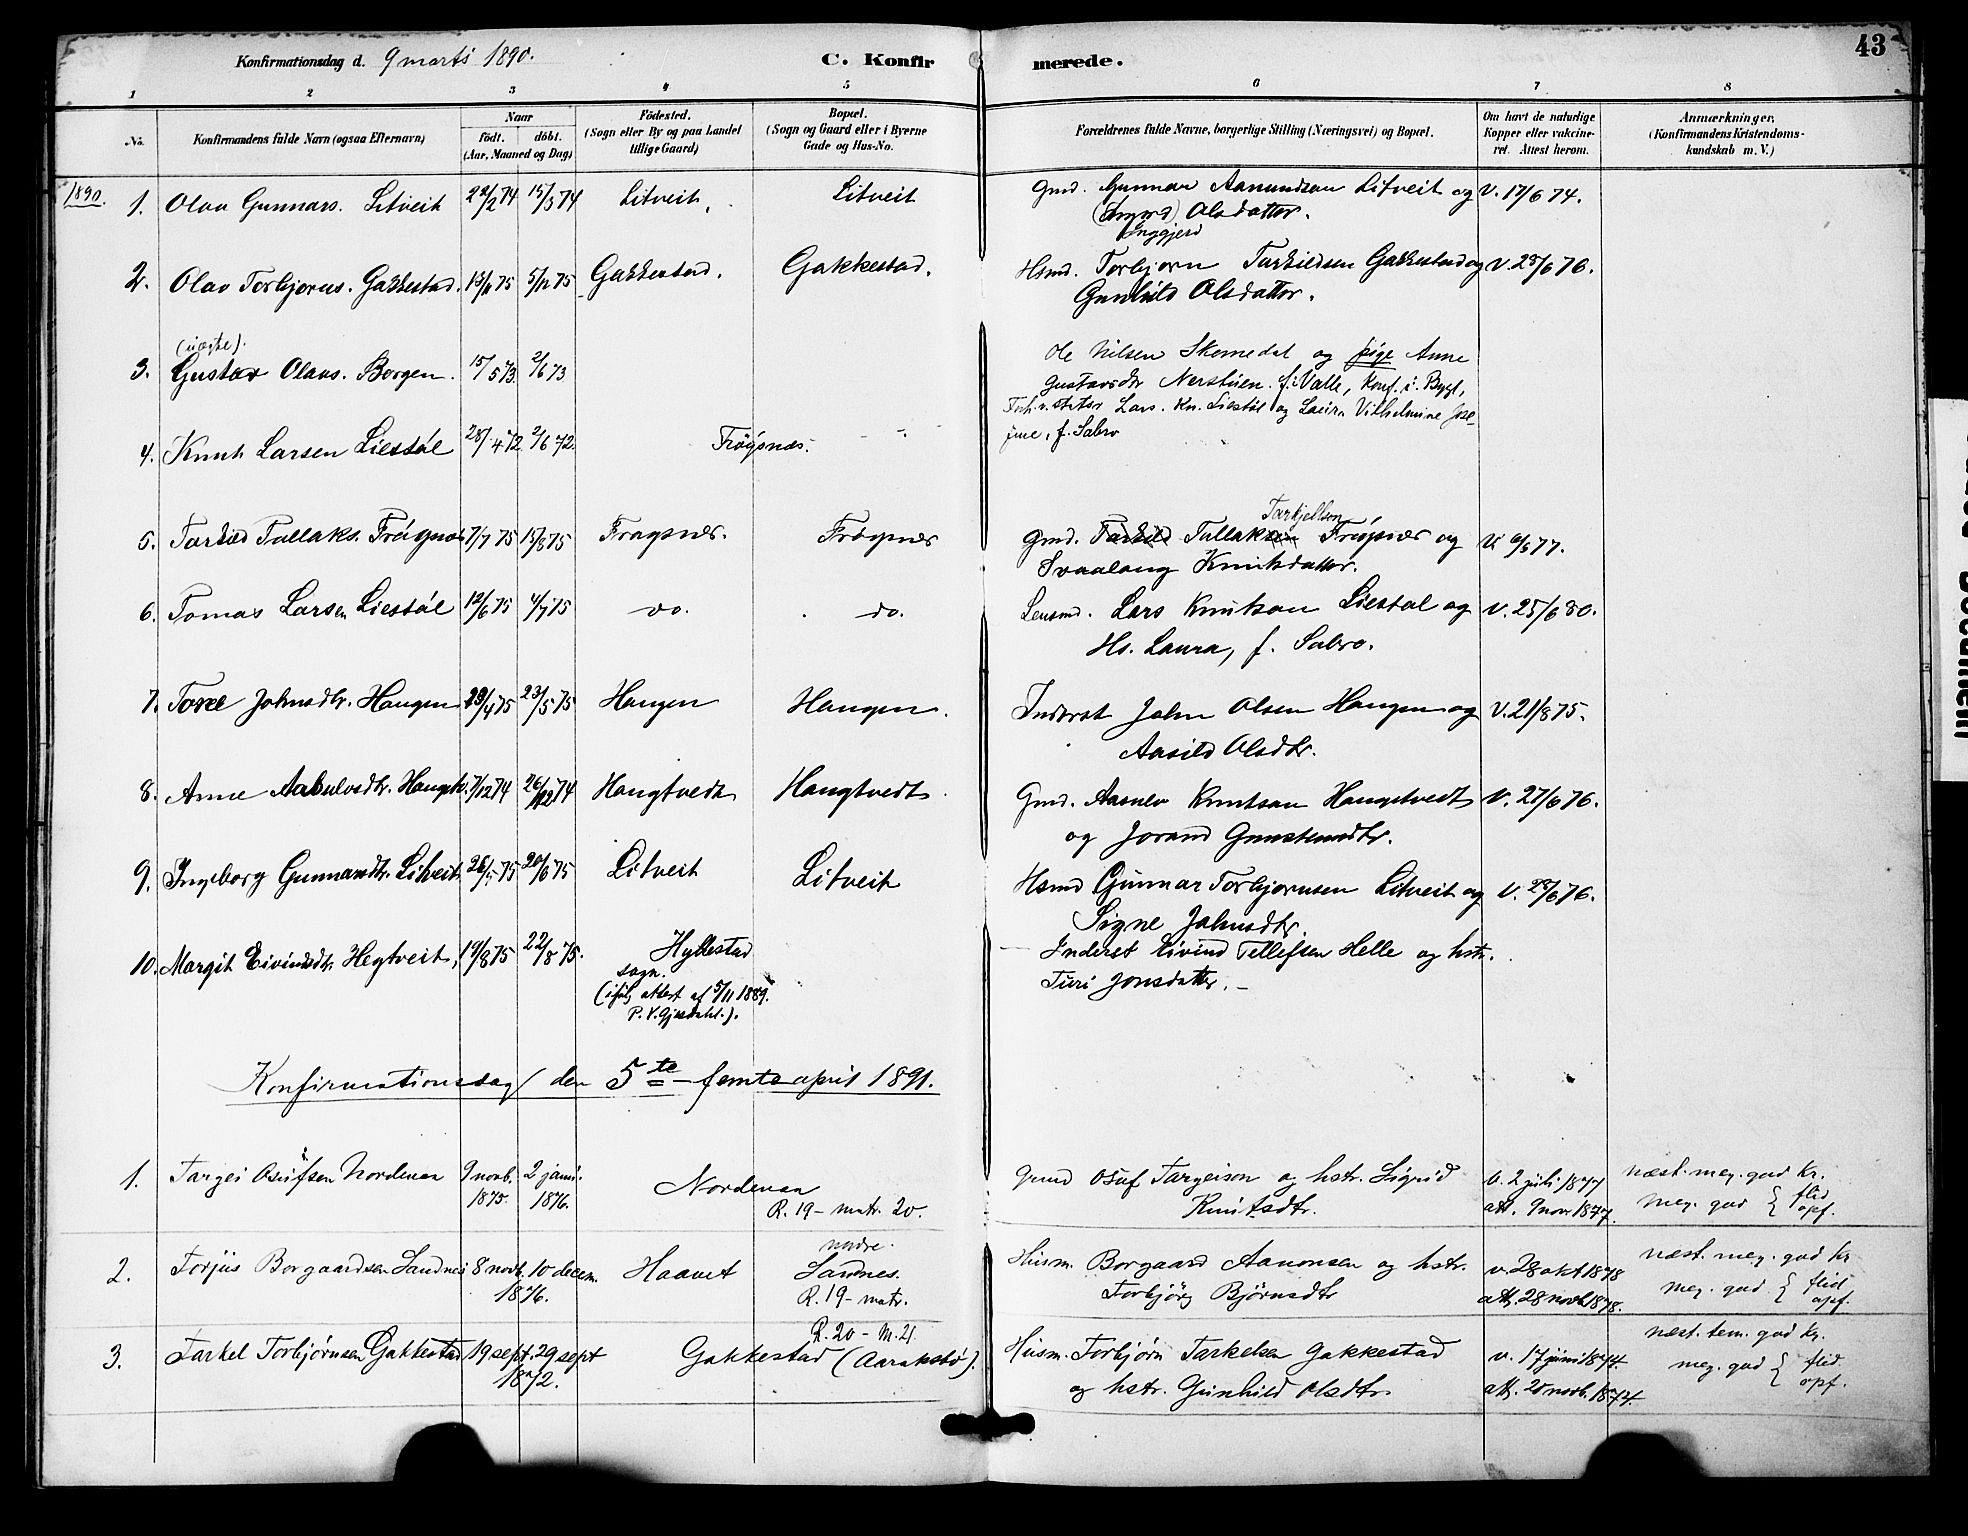 43
Konfirmationsdag d. 9 marts 1890. C. Konfirmerede.
1 2 3 4 5 6 7 8
No. Konfirmandens fulde Navn (ogsaa Efternavn) Naar født. døbt. (Aar, Maaned og Dag) Fødested. (Sogn eller By og paa Landet tillige Gaard) Bopæl. (Sogn og Gaard eller i Byerne Gade og Hus-No. Forældrenes fulde Navne, borgerlige Stilling (Næringsvei) og Bopæl. Om havt de naturlige Kopper eller vakcineret. Attest herom. Anmærkninger. (Konfirmandens Kristendomskundskab m. V.)
1890. 1. Olav Gunnars. Litveit 22/2 74 15/3 74 Litveit Litveit Gmd. Gunnar Aamundsen Litveit og V. 17/6 74.
Olsdatter.
Inggjerd
2. Olav Torbjorns. Gakkestad. 13/11 75 5/12 75 Gakkestad. Gakkestad. Hsmd. Torbjorn Tarkildsen Gakkestad og V. 25/6 76.
Gunhild Olsdatter.
(uægte).
3. Gustav Olavs. Borgen. 15/5 73. 2/6 73 Ole Nilsen Skomedal og pige Anne
Gustavsdtr Nerstuen. f. i Valle, Konf. i Bygl,
Lars. Kn. Liestøl og Laura Vilhelmine Jose-
fine, f. Sabro
4. Knut Larsen Liestøl 28/4 72. 2/6 72. Frøysnæs.
5. Tarkild Tallaks. Frøysnæs 7/7 75 15/8 75 Frøysnæs. Frøysnæs Gmd. Tarkild Tallaksen Tarkjellson Frøysnæs og V. 6/5 77.
Svaalaug Knutsdatter.
6. Tomas Larsen Liestøl 12/6 75 4/7 75 do. do. Lensmd. Lars Knutson Liestøl og V. 25/6 80.
Hs. Laura, f. Sabro.
7. Tore Johnsdtr. Haugen 29/4 75 23/5 75 Haugen Haugen. Inderst John Olsen Haugen og V. 21/8 75.
Aasild Olsdtr.
8. Anne Aasulvsdtr. Haugtv. 7/12 74 26/12 74 Haugtvedt Haugtvedt Gmd. Aasulv Knutson Haugtvedt V. 27/6 76.
og Jorand Gunsteinsdtr.
9. Ingeborg Gunnarsdtr. Litveit 26/5 75 20/6 75 Litveit Litveit Hsmd Gunnar Torbjornsen Litveit og V. 25/6 76.
Signe Johnsdtr.
10. Margit Eivindsdtr. Hegtveit, 19/8 75 22/8 75. Hyllestad Inderst Eivind Tellefsen Helle og hstr.
sogn.
Turi Jonsdatter. –
(ifølg attest af 5/11 1889.
P. V. Gjesdahl.).
Konfirmationsdag den 5te – femte april 1891.
1. Targei Osufsen Nordenaa 9 novb. 1875. 2 januar. 1876. Nordenaa Gmd Osuf Targeison og hstr. Sigrid v. 2 juli 1877 næst. meg. god Kr.
R. 19 – matr. 20. Knutsdtr. att. 9 nov 1877. meg. god { flid opf.
2. Torjus Borgaardsen Sandnes 8 novb. 10 decem. 1876. Haavet nordre. Sandnes. R. 19 – matr. Husm. Borgaard Aanonsen og hstr. v. 28 okt 1878 næst. meg. god Kr
Torbjørg Bjørnsdtr att. 28 novb 1878. meg. god { flid opf.
R. 20 – M. 21
3. Tarkel Torbjørnsen Gakkestad 19 sept. 29 sept 1872. Gakkestad (Aarakstø). Husm. Torbjørn Tarkelsen Gakkestad v. 17 juni 1874. næst. tem. god Kr.
og hstr. Gunhild Olsdtr. att. 20 novb. 1874. meg. god { flid. opf.